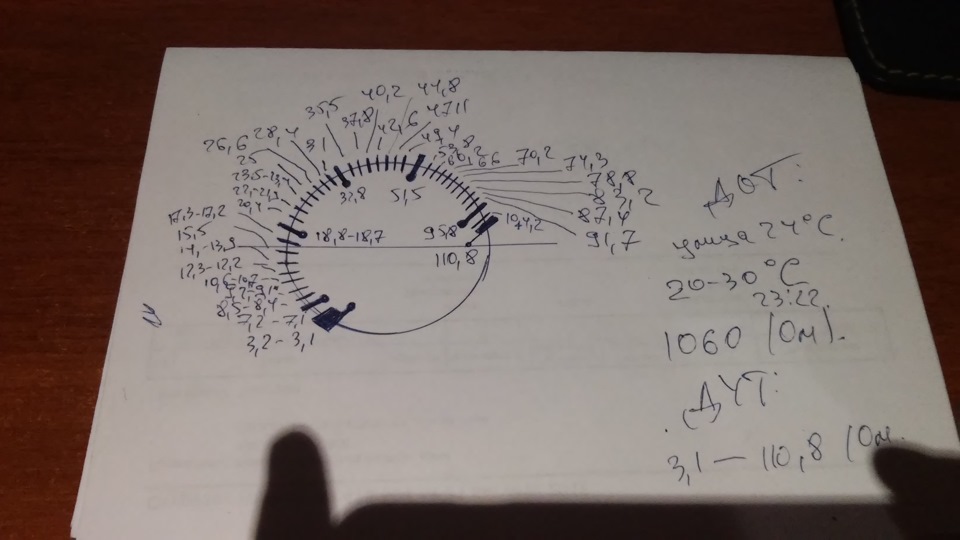 40,2
44,8
35,5
37,8
42,6
47,1
49,4
28,4
31
26,6
25
70,2
74,3
66
60,2
78,8
83,2
87,4
91,7
32,8
51,5
20,4
17,3-17,2
15,5
18,8-18,7
95,8
104,2
110,8
12,3-12,2
8,5-8,4
7,2-7,1
3,2-3,1
ДОТ:
улица 24°C.
20-30°C
23:22.
1060 (Ом).
ДУТ:
3,1 — 110,8 (Ом.